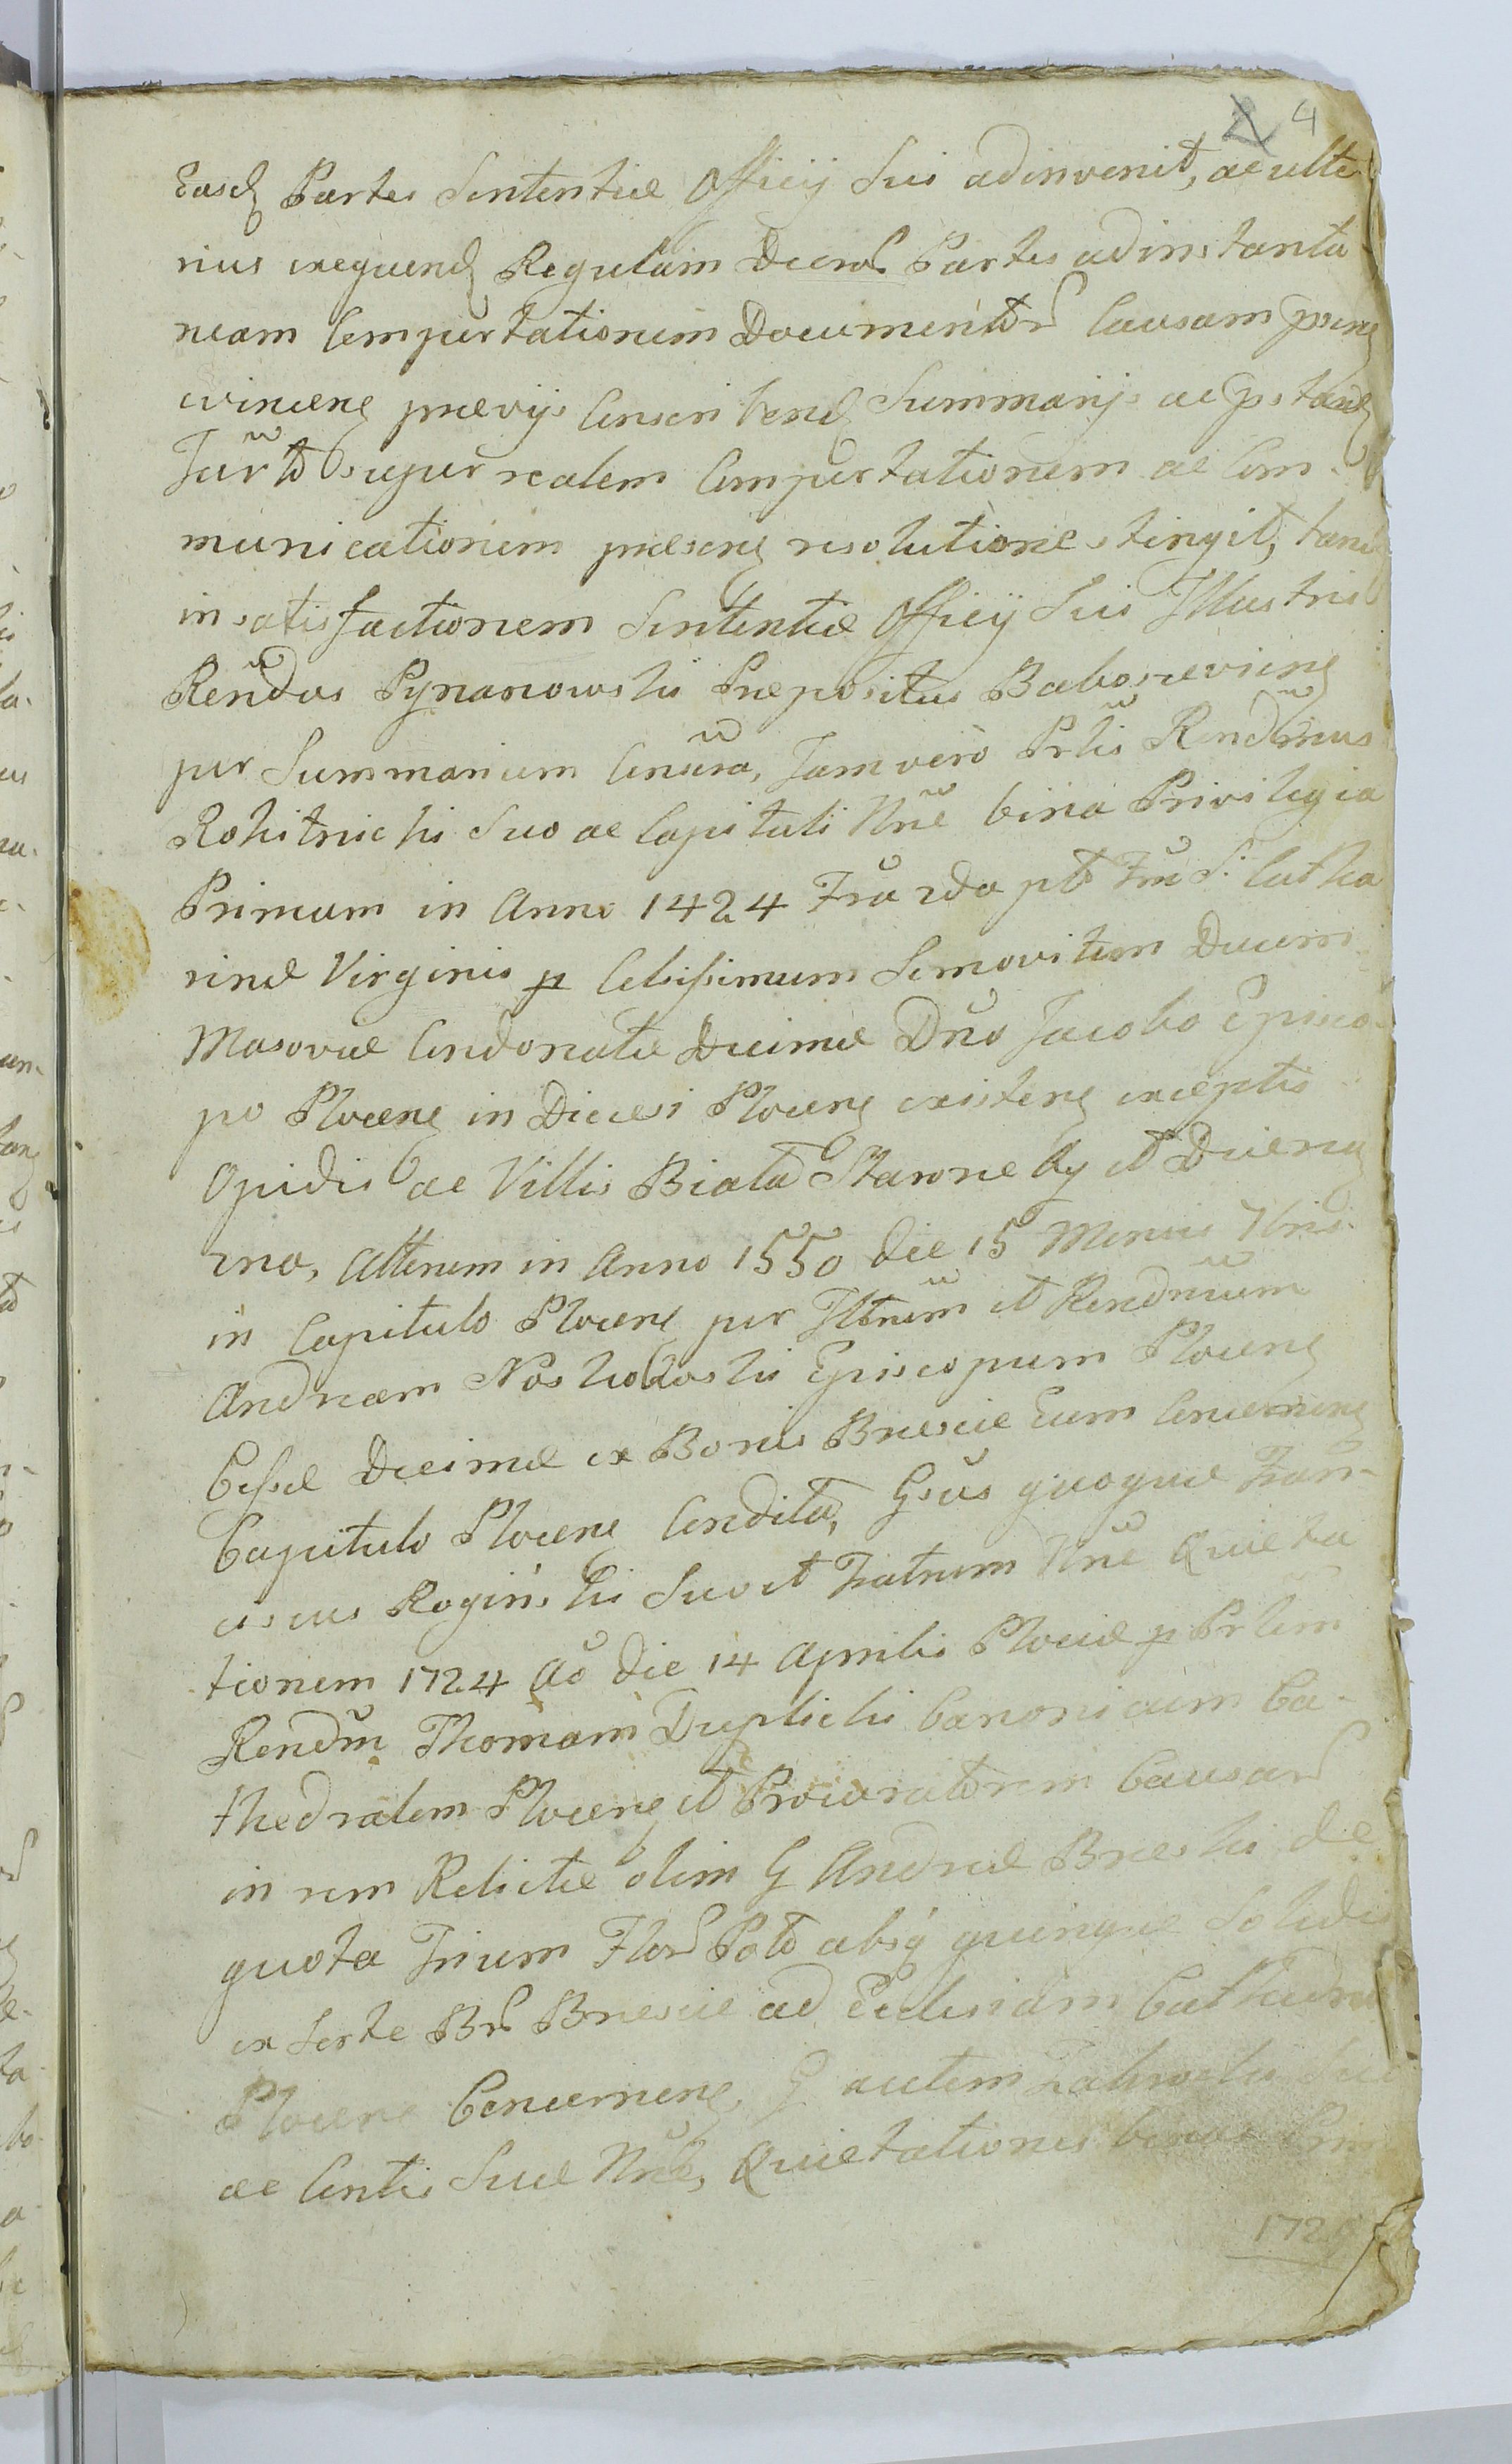 4
Easd Partes Sententiae Officij Sui adinvenit, ac ulte
rius exequend Regulam Decret Partes ad instanta
neam Comportationem Documentor Causam
evincen praevijs Conscribend Summarijs ac pstand
Jurto super realem Comportationem ac Com-
municationem praesens resolutione stingit, tand
in satisfactionem Sententiae Officij Sui Illustris
Rendus Pynanowski Praepositus Baboseviens
per Summarium Census, Jam vero Prlis Rendmus
Rokitnicki Suo ac Capituli Nne bina Privilegia
Primum in Anno 1424 Fria 2da pt Fm S. Catha
rinae Virginis p Celsissimum Semovitum Ducem
Masoviae Condonatae Decimae Dno Jacobo Episco-
po Plocens in Diecesi Plocens existens exceptis
Opidis ac Villis Biala Staroreby et Dziersz
zna, Alterum in Anno 1550 die 15 Mensis Xbris
in Capitulo Plocens per Illrum et Rendmum
Andream Noskowski Episcopum Plocens
Cessae Decimae ex Bonis Brescie Eum Concernens
Capitulo Plocens Condita, Gsus quoque Fran-
ciscus Rogiński Suo et Fratrum Nne Quieta
tionem 1724 Ao die 14 Aprilis Plociae p Prlem
Rendm Thomam Dieplicki Canonicum Ca-
thedralem Plocens et Procuratorem Causar
in rem Relictae olim G Andreae Brieski de
quota Trium Flor Pol absq quinque Solidis
ex Sorte Br Brescie ad Ecclesiam Cathedral
Plocens Concernens, G autem Zakrocki Suo
ac Contis Suae Nne, Quietationes binas Prim
172